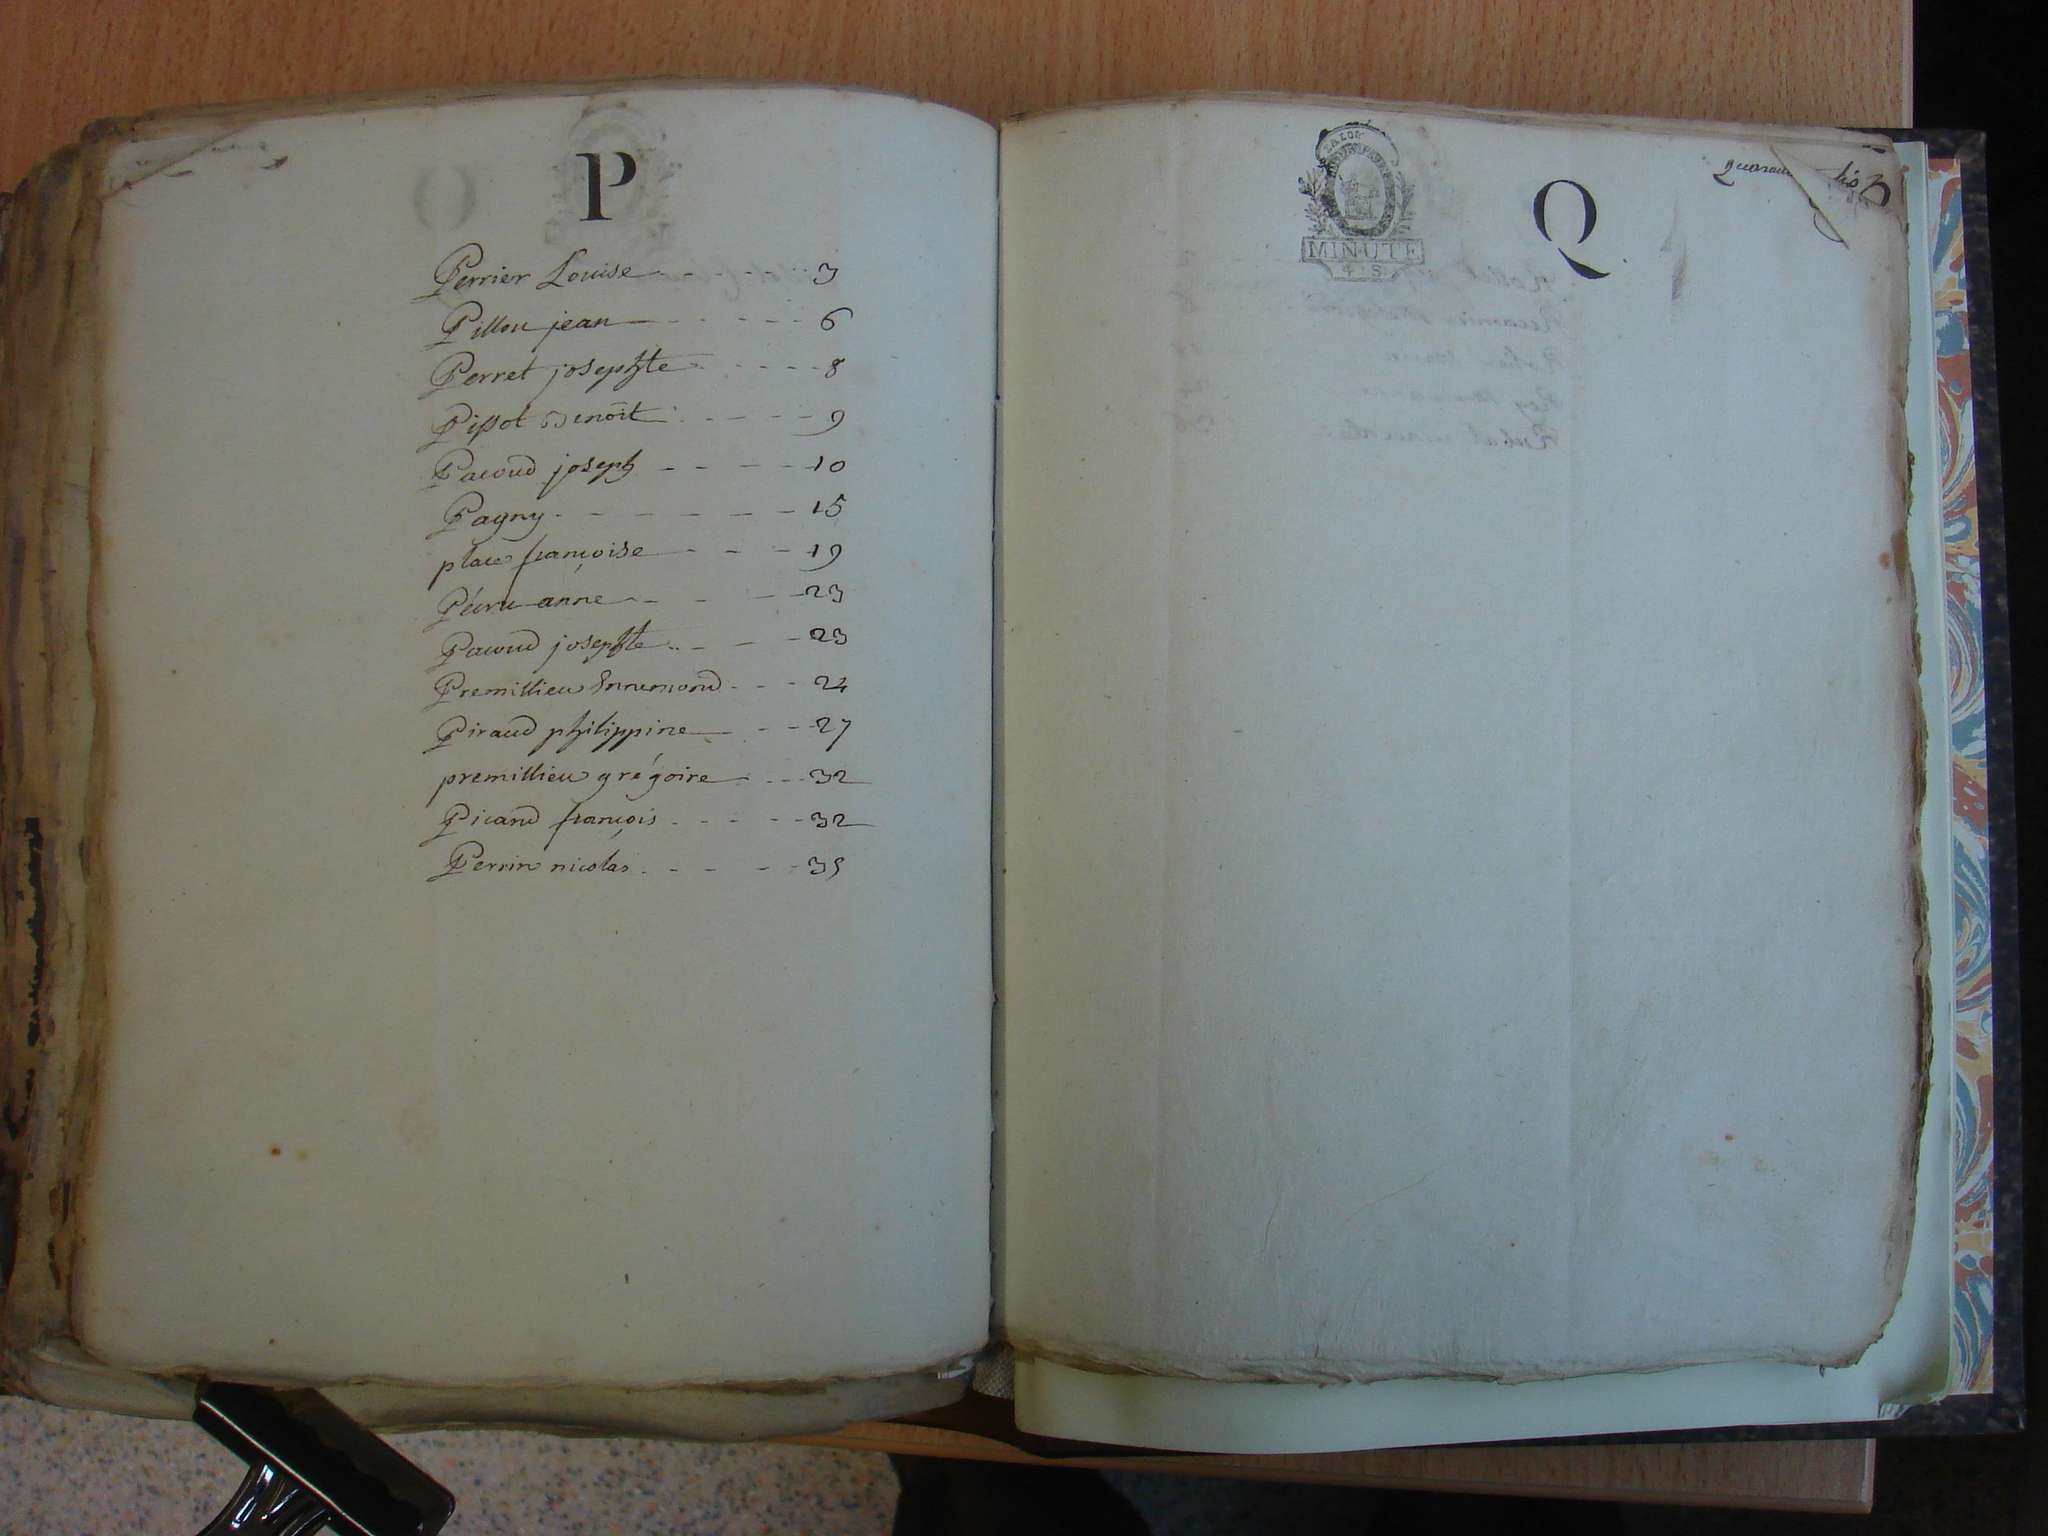 P
Perrier Louise 3
Pillou jean 6
Perret josephte 8
Pissot Benoît 9
Pacoud joseph 10
Pagny 15
place françoise 19
anne 23
Pacoud josephte 23
Premillieu Ennemond 24
Piraud philippine 27
premillieu grégoire 32
Picand françois 32
Perrin nicolas 35
LA LOI
MINUTE
4 S
Q